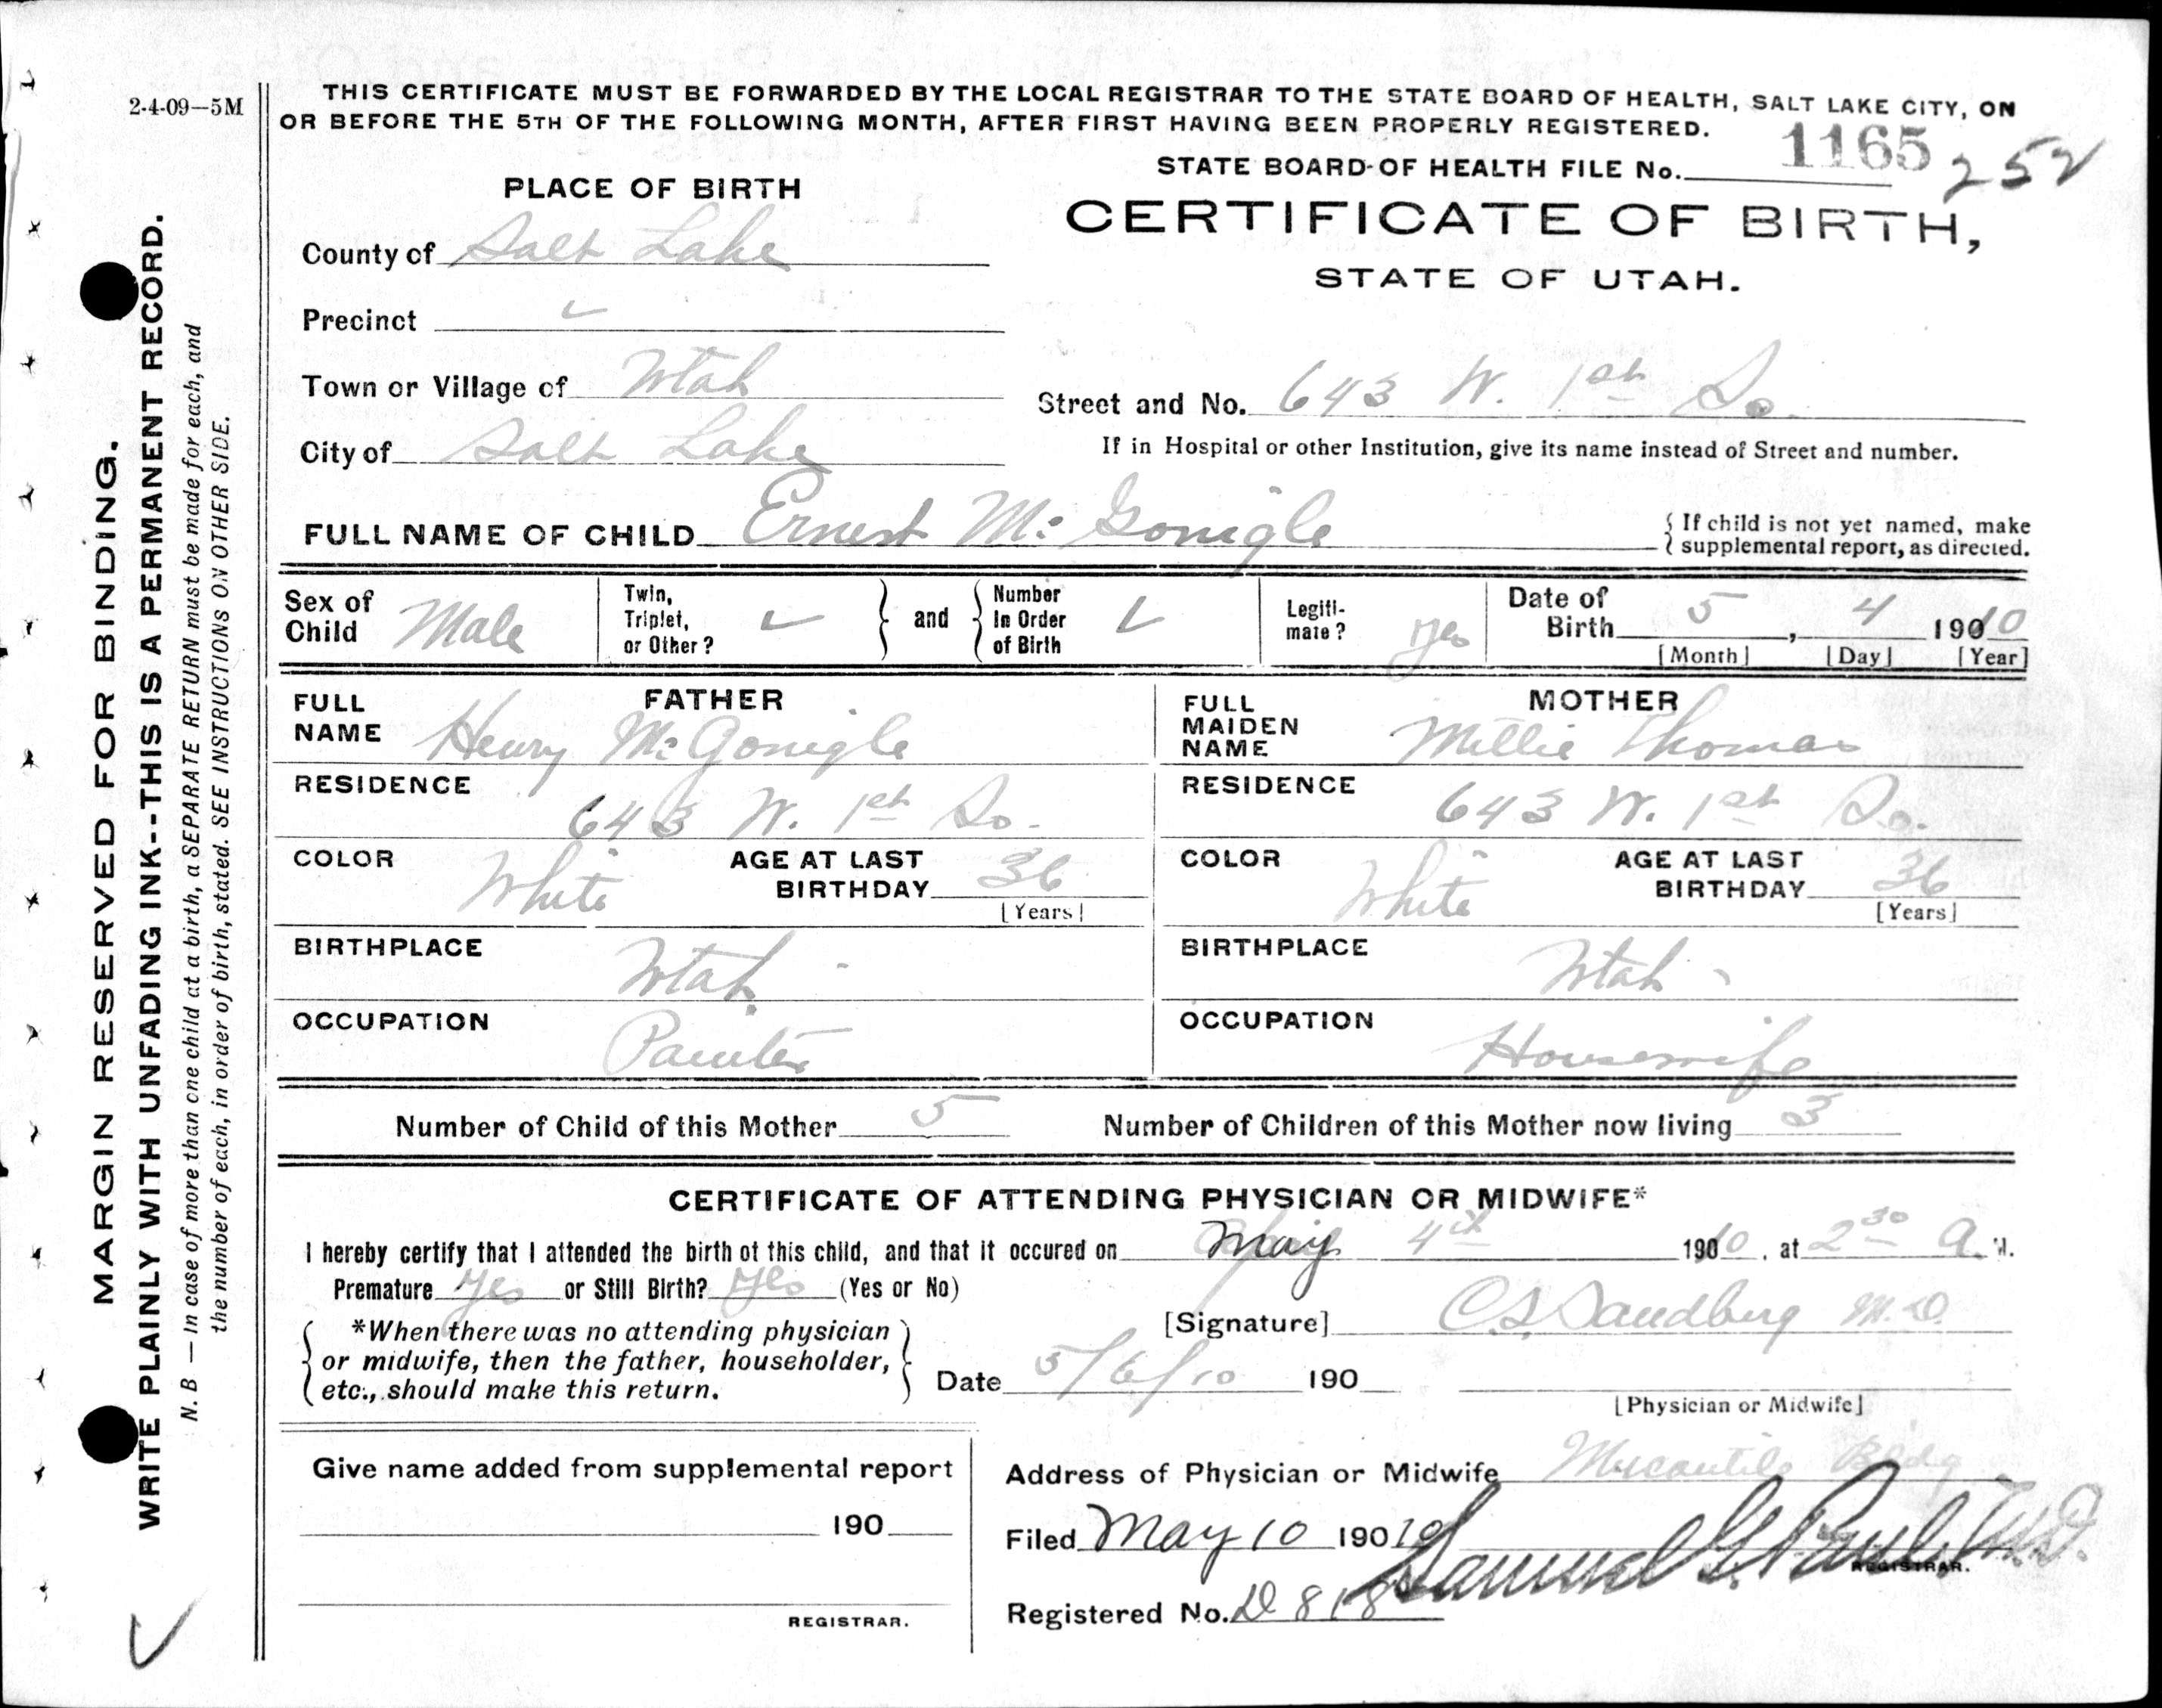 2-4-09—5M
THIS CERTIFICATE MUST BE FORWARDED BY THE LOCAL REGISTRAR TO THE STATE BOARD OF HEALTH, SALT LAKE CITY, ON
OR BEFORE THE 5TH OF THE FOLLOWING MONTH, AFTER FIRST HAVING BEEN PROPERLY REGISTERED.
STATE BOARD OF HEALTH FILE No. 1165 252
PLACE OF BIRTH
CERTIFICATE OF BIRTH,
STATE OF UTAH.
County of Salt Lake
Precinct
Town or Village of Utah
Street and No. 643 W. 1st So.
City of Salt Lake
If in Hospital or other Institution, give its name instead of Street and number.
FULL NAME OF CHILD Ernest Mc Gonigle
{ If child is not yet named, make
supplemental report, as directed.
Sex of Child Male
Twin, Triplet, or Other?
and
Number In Order of Birth
Legiti-mate? yes
Date of Birth 5, 4 19010
[Month] [Day] [Year]
FATHER
FULL NAME Henry Mc Gonigle
RESIDENCE
643 W. 1st So.
COLOR White AGE AT LAST BIRTHDAY 36
[Years]
BIRTHPLACE
Utah
OCCUPATION
Painter
MOTHER
FULL MAIDEN NAME Millie Thomas
RESIDENCE
643 W. 1st So.
COLOR White AGE AT LAST BIRTHDAY 36
[Years]
BIRTHPLACE
Utah
OCCUPATION
Housewife
Number of Child of this Mother 5 Number of Children of this Mother now living 3
CERTIFICATE OF ATTENDING PHYSICIAN OR MIDWIFE*
I hereby certify that I attended the birth of this child, and that it occured on May 4th 19010, at 2 30 A M.
Premature Yes or Still Birth? Yes (Yes or No)
[Signature] C.S. Sandberg M.D.
*When there was no attending physician
or midwife, then the father, householder,
etc., should make this return.
Date 5/6/10 190
[Physician or Midwife]
Give name added from supplemental report
190
REGISTRAR.
Address of Physician or Midwife Mercantile Bldg
Filed May 10 19010 Samuel G. Paul, M.D.
REGISTRAR.
Registered No. D 818
MARGIN RESERVED FOR BINDING.
WRITE PLAINLY WITH UNFADING INK--THIS IS A PERMANENT RECORD.
N. B — In case of more than one child at a birth, a SEPARATE RETURN must be made for each, and
the number of each, in order of birth, stated. SEE INSTRUCTIONS ON OTHER SIDE.